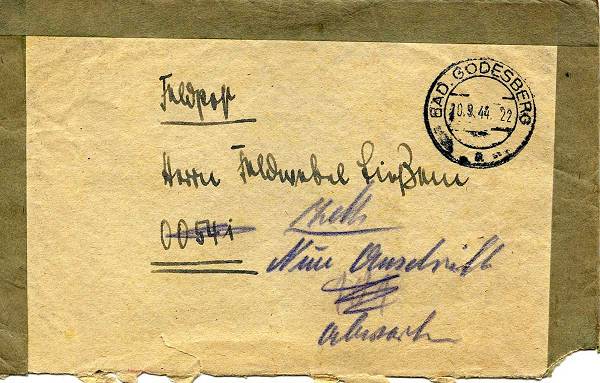 Feldpost
BAD GODESBERG
10.9.44. 22
a
Herrn Feldwebel
00541
Zurück
Neue Anschrift
abwarten